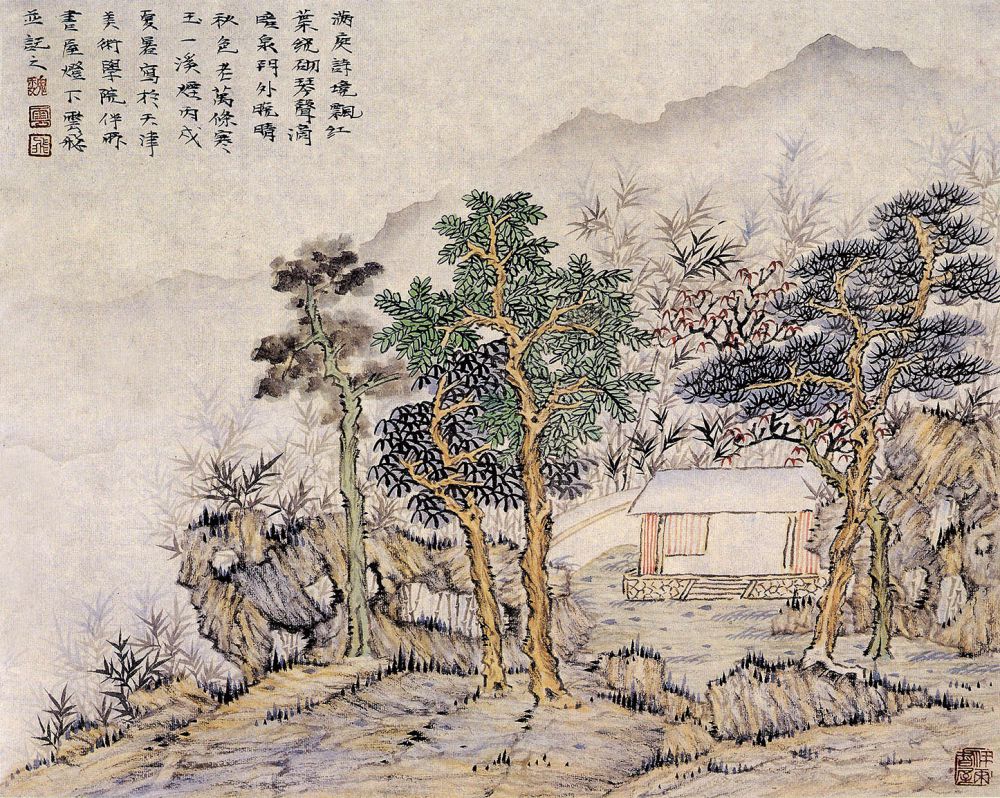 滿庭詩境飄紅
葉繞砌琴聲滴
暗泉門外晚晴
秋色老萬條寒
玉一溪煙丙戌
夏暑寫於天津
美術學院伴
書屋燈下雲飛
並記之
魏
雲
飛